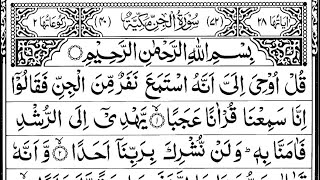 اٰيَاتُهَا ٢٨ (٧٢) سُوْرَةُ الْجِنِّ مَكِّيَّةٌ (٤٠) رُكُوْعَاتُهَا ٢
بِسْمِ اللّٰهِ الرَّحْمٰنِ الرَّحِيْمِ
قُلْ اُوْحِيَ اِلَيَّ اَنَّهُ اسْتَمَعَ نَفَرٌ مِّنَ الْجِنِّ فَقَالُوْٓا
اِنَّا سَمِعْنَا قُرْاٰنًا عَجَبًا ۙ۝١ يَّهْدِيْٓ اِلَى الرُّشْدِ
فَاٰمَنَّا بِهٖ ؕ وَلَنْ نُّشْرِكَ بِرَبِّنَآ اَحَدًا ۙ۝٢ وَّاَنَّهٗ